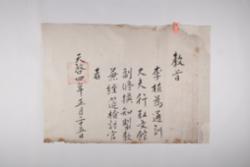 教旨
李植爲通訓
大夫行弘文館
副修撰知製敎
兼經筵檢討官
者
天啓四年五月二十五日